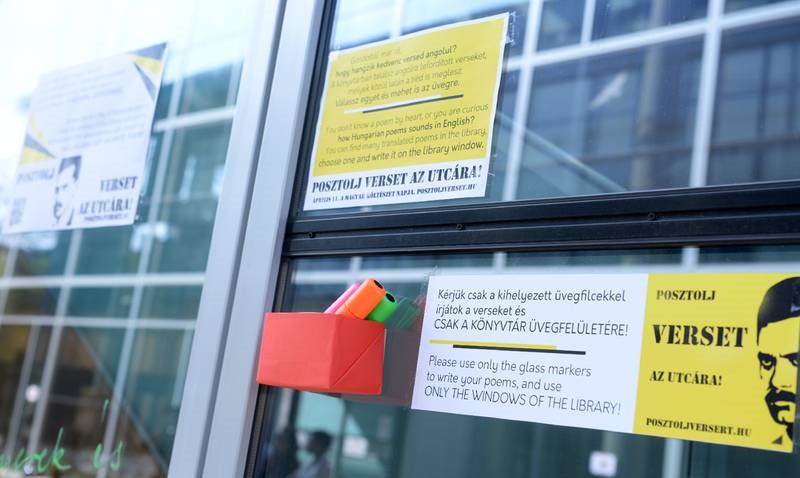 POSZTOLJ
VERSET
AZ UTCÁRA!
POSZTOLJVERSET.HU
Gondoltál már rá,
hogy hangzik kedvenc versed angolul?
A könyvtárban találsz angolra lefordított verseket,
melyek közül talán a tiéd is meglesz.
Válassz egyet és mehet is az üvegre.
You don't know a poem by heart, or you are curious
how Hungarian poems sounds in English?
You can find many translated poems in the library,
choose one and write it on the library window.
POSZTOLJ VERSET AZ UTCÁRA!
ÁPRILIS 11. A MAGYAR KÖLTÉSZET NAPJA. POSZTOLJVERSET.HU
Kérjük csak a kihelyezett üvegfilcekkel
írjátok a verseket és
CSAK A KÖNYVTÁR ÜVEGFELÜLETÉRE!
Please use only the glass markers
to write your poems, and use
ONLY THE WINDOWS OF THE LIBRARY!
POSZTOLJ
VERSET
AZ UTCÁRA!
POSZTOLJVERSERT.HU
is